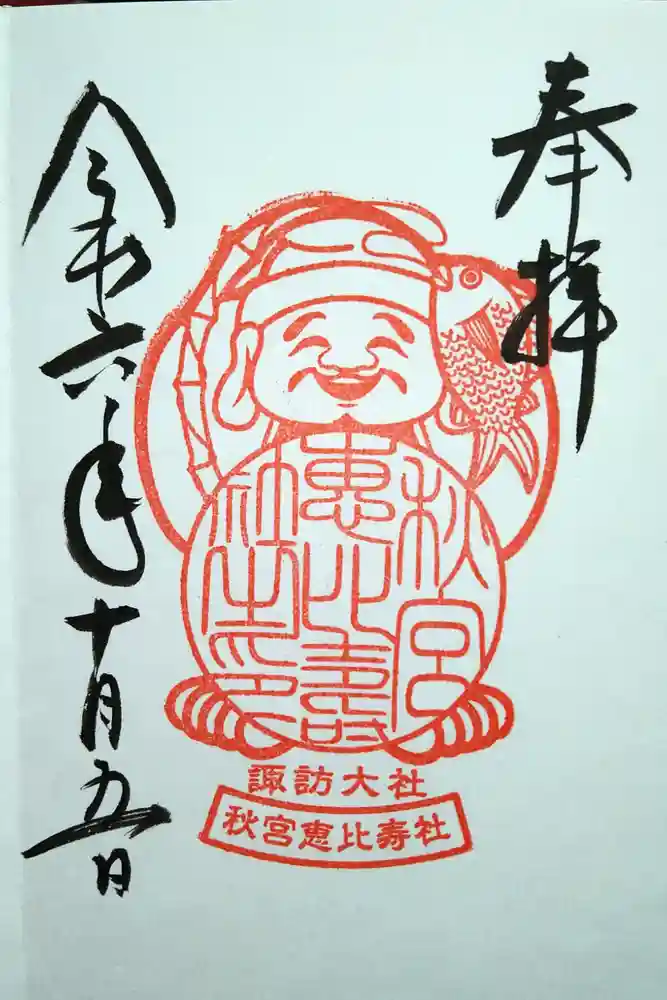 奉拝
秋宮
恵比壽
社之印
諏訪大社
秋宮恵比寿社
令六年十月五日